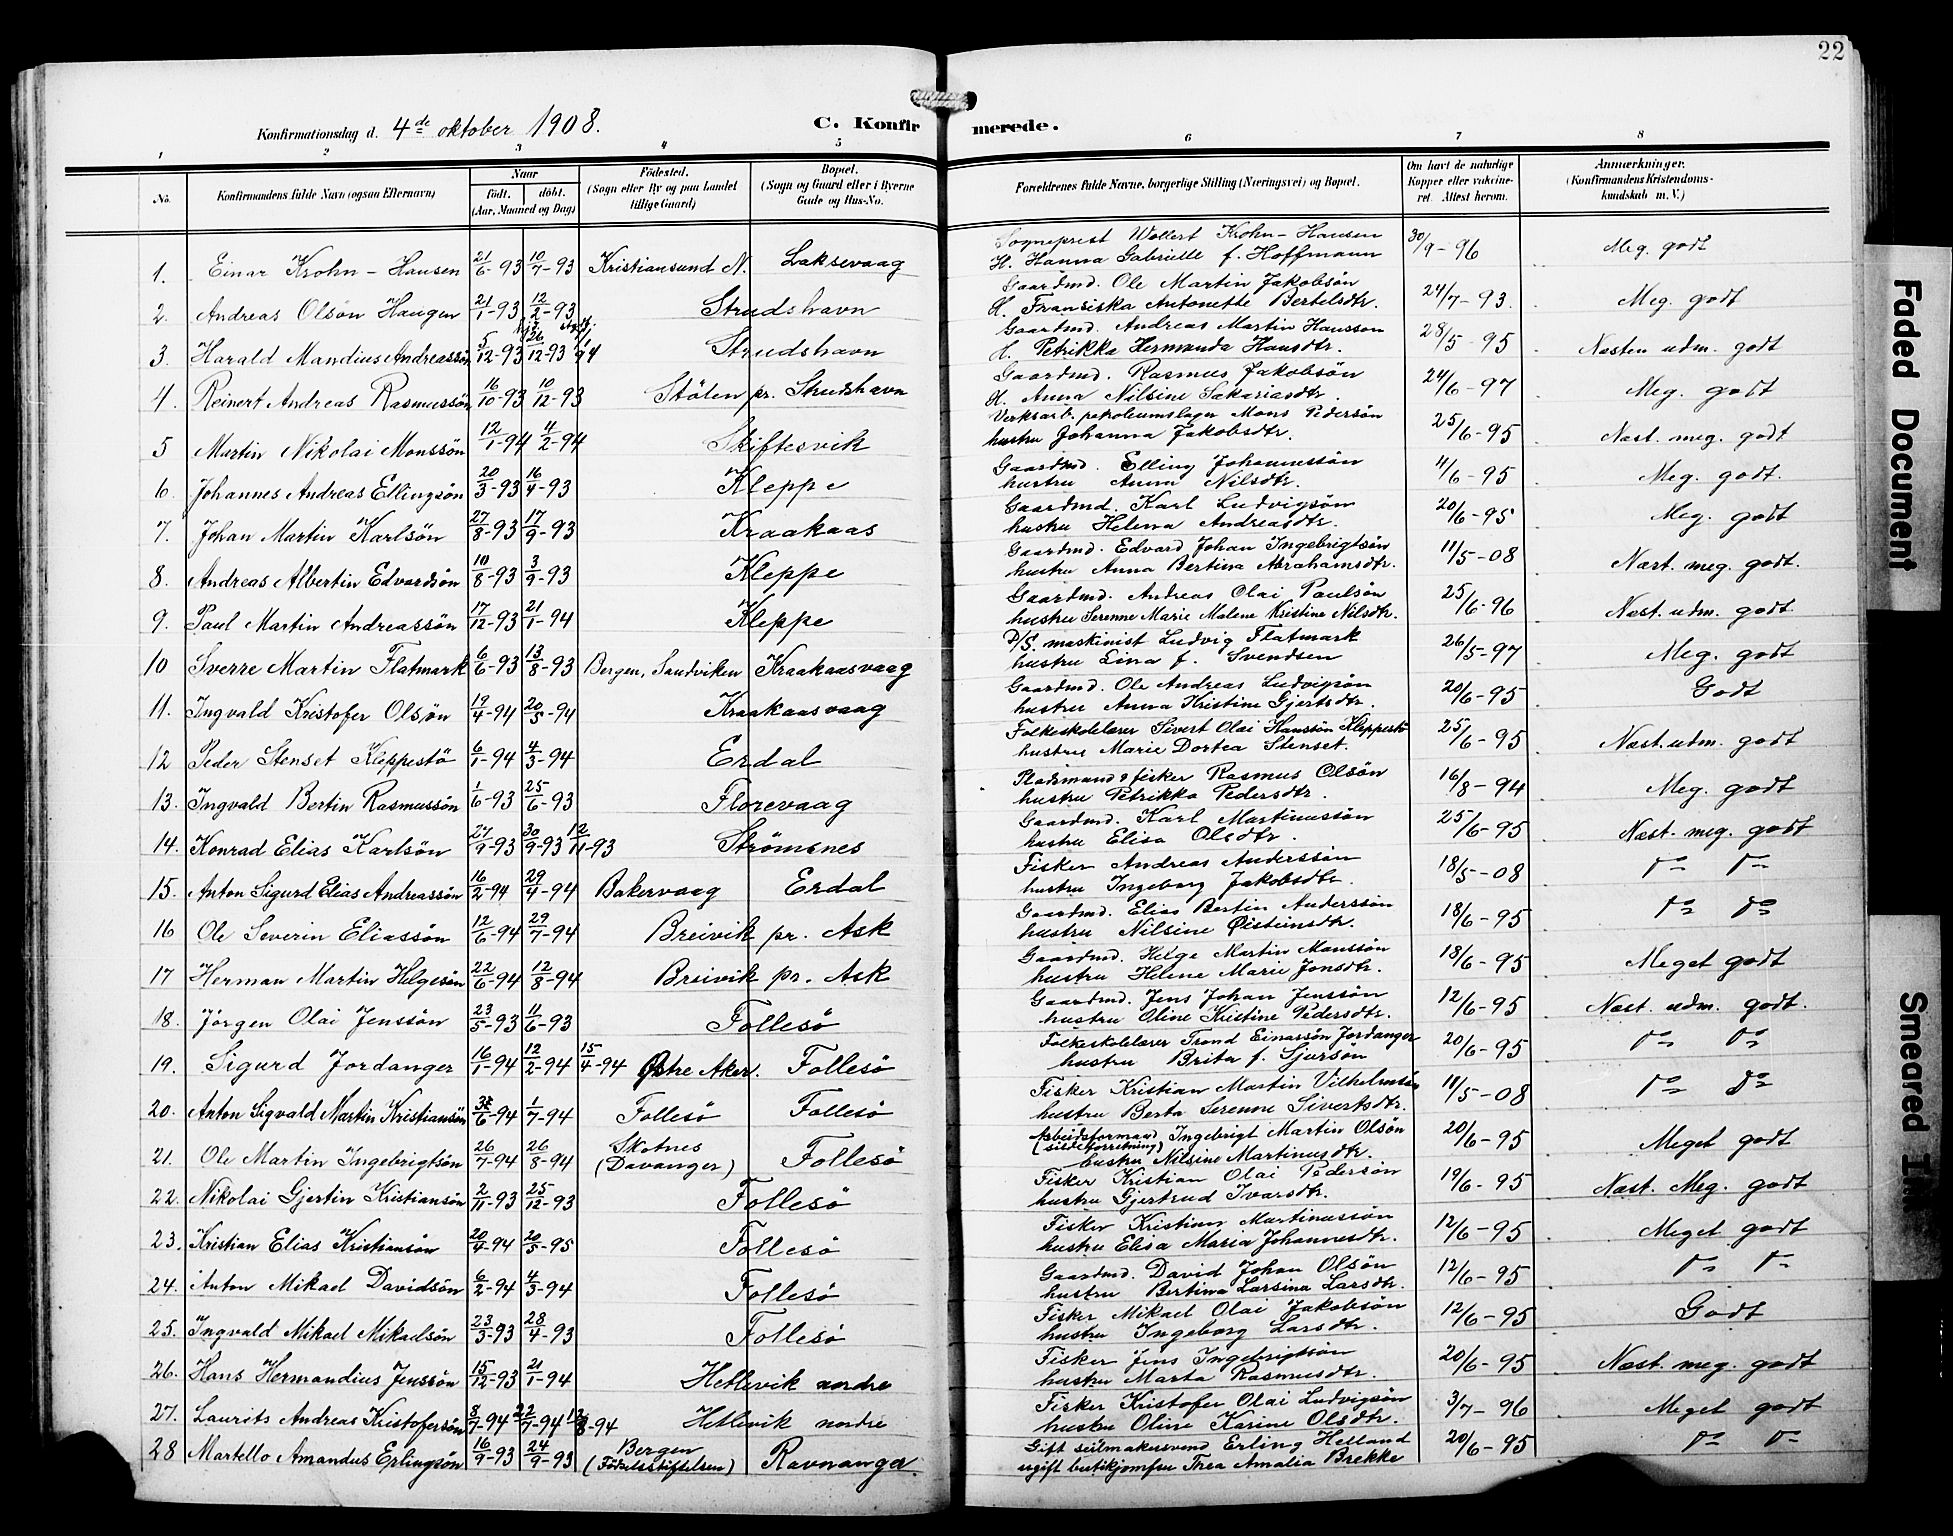 22
Konfirmationsdag d. 4de oktober 1908.
C. Konfirmerede.
1 2 3 4 5 6 7 8
No. Konfirmandens fulde Navn (ogsaa Efternavn) Naar født. døbt. (Aar, Maaned og Dag) Fødested. (Sogn eller By og paa Landet tillige Gaard) Bopæl. (Sogn og Gaard eller i Byerne Gade og Hus-No. Forældrenes fulde Navne, borgerlige Stilling (Næringsvei) og Bopæl. Om havt de naturlige Kopper eller vaksineret. Attest herom. Anmærkninger. (Konfirmandens Kristendomskundskab m. V.)
1. Einar Krohn-Hansen 21/6-93 10/7-93 Kristiansund N. Laksevaag Sogneprest Wollert Krohn-Hansen 30/9-96 Meg. godt
H. Hanna Gabrielle f. Hoffmann
2. Andreas Olsön Haugen 21/1-93 12/2-93 Strudshavn Gaardmd. Ole Martin Jakobsön 24/7-93. Meg. godt
H. Fransiska Antonette Bertelsdtr.
3. Harald Mandius Andreassön 5/12-93 26/12-93 Strudshavn Gaardmd. Andreas Martin Hansson 28/5-95 Næsten udm. godt
H. Petrikka Hermanda Hansdtr.
4. Reinert Andreas Rasmussön 16/10-93 10/12-93 Stölen pr. Strudshavn Gaardmd. Rasmus Jakobsön 24/6-97 Meg. godt
H. Anna Nilsine Sakariasdtr.
5 Martin Nikolai Monssön 12/1-94 4/2-94 Skiftesvik Verksarb. petroleumslager Mons Pedersön 25/6-95 Næst. meg. godt
hustru Johanna Jakobsdtr.
6. Johannes Andreas Ellingsön 20/3-93 16/4-93 Kleppe Gaardmd. Elling Johannessön 4/6-95 Meg. godt.
hustru Anna Nilsdtr.
7. Johan Martin Karlsön 27/8-93 17/9-93 Kraakaas Gaardmd. Karl Ludvigsön 20/6-95 Meg. godt
hustru Helena Andreasdtr.
8. Andreas Albertin Edvardsön 10/8-93 3/9-93 Kleppe Gaardmd. Edvard Johan Ingebrigtsön 11/5-08 Næst. meg. godt.
hustru Anna Bertina Abrahamsdtr.
9. Paul Martin Andreassön 17/12-93 21/1-94 Kleppe Gaardmd. Andreas Olai Paulsön 25/6-96 Næst. udm. godt.
hustru Serenne Marie Malene Kristine Nilsdtr.
10 Sverre Martin Flatmark 6/6-93 13/8-93 Bergen, Sandviken Kraakaasvaag D/S. maskinist Ludvig Flatmark 26/5-97 Meg. godt
hustru Lina f. Svendsen
11. Ingvald Kristofer Olsön 19/4-94 20/5-94 Kraakaasvaag Gaardmd. Ole Andreas Ludvigsön 20/6-95 Godt
hustru Anna Kristine Gjertsdtr.
12 Peder Stenset Kleppestö 6/1-94 4/3-94 Erdal Folkeskolelærer Sivert Olai Hanssön Kleppestö 25/6-95 Næst. udm. godt
hustru Marie Dortea Stenset.
13. Ingvald Bertin Rasmussön 1/6-93 25/6-93 Florevaag Pladsmand & fisker Rasmus Olsön 16/8-94 Meg. godt
hustru Petrikka Pedersdtr.
14. Konrad Elias Karlsön 27/9-93 30/9-93 12/11-93 Strömsnes Gaardmd. Karl Martinussön 25/6-95 Næst. meg. godt
hustru Elisa Olsdtr.
15. Anton Sigurd Elias Andreassön 16/2-94 29/4-94 Bakervaag Erdal Fisker Andreas Anderssön 18/5-08 do do
hustru Ingeborg Jakobsdtr.
16 Ole Severin Eliassön 12/6-94 29/7-94 Breivik pr. Ask Gaardmd. Elias Bertin Anderssön 18/6-95 do do
hustru Nilsine Øisteinsdtr.
17 Herman Martin Helgesön 22/6-94 12/8-94 Breivik pr. Ask Gaardmd. Helge Martin Monssön 18/6-95 Meget godt
hustru Helene Marie Jonsdtr.
18. Jörgen Olai Jenssön 23/5-93 11/6-93 Follesö Gaardmd. Jens Johan Jenssön 12/6-95 Næst. udm. godt.
hustru Oline Kristine Pedersdtr.
19. Sigurd Jordanger 16/1-94 12/2-94 15/4-94 Østre Aker. Follesö Folkeskolelærer Trond Einarssön Jordanger 20/6-95 do do
hustru Brita f. Sjursön
20. Anton Sigvald Martin Kristiansön /6-94 1/7-94 Follesö Follesö Fisker Kristian Martin Vilhelmsön 11/5-08 do do
hustru Berta Serenne Sivertsdtr.
21. Ole Martin Ingebrigtsön 26/7-94 26/8-94 Skotnes (Davanger) Follesö Arbeidsformand (sildeforretning) Ingebrigt Martin Olsön 20/6-95 Meget godt
hustru Nilsine Martinusdtr.
22. Nikolai Gjertin Kristiansön 2/11-93 25/12-93 Follesö Fisker Kristian Olai Pedersön 19/6-95 Næst. Meg. godt
hustru Gjertrud Ivarsdtr.
23. Kristian Elias Kristiansön 20/4-94 20/5-95 Follesö Fisker Kristian Martinussön 12/6-95 Meget godt
hustru Elisa Maria Johannesdtr.
24. Anton Mikael Davidsön 6/2-94 4/3-94 Follesö Gaardmd. David Johan Olsön 12/6-95 do do
hustru Bertina Larsina Larsdtr.
25. Ingvald Mikael Mikaelsön 23/3-93 28/4-93 Follesö Fisker Mikael Olai Jakobsön 12/6-95 Godt
hustru Ingeborg Larsdtr.
26. Hans Hermandius Jenssön 15/12-93 21/1-94 Hetlevik nordre Fisker Jens Ingebrigtsön 20/6-95 Næst. meg. godt
hustru Marta Rasmusdtr.
27. Laurits Andreas Kristofersön 8/7-94 22/7-94 12/8-94 Hetlevik nordre Fisker Kristofer Olai Ludvigsön 3/7-96 Meget godt
hustru Oline Karine Olsdtr.
28 Martello Amandus Erlingsön 16/9-93 24/9-93 Bergen (Födselsstiftelsen) Ravnanger Gift seilmakersvend Erling Helland 20/6-95 do do
ugift butikjomfru Thea Amalia Brekke
Faded Document
Smeared Ink